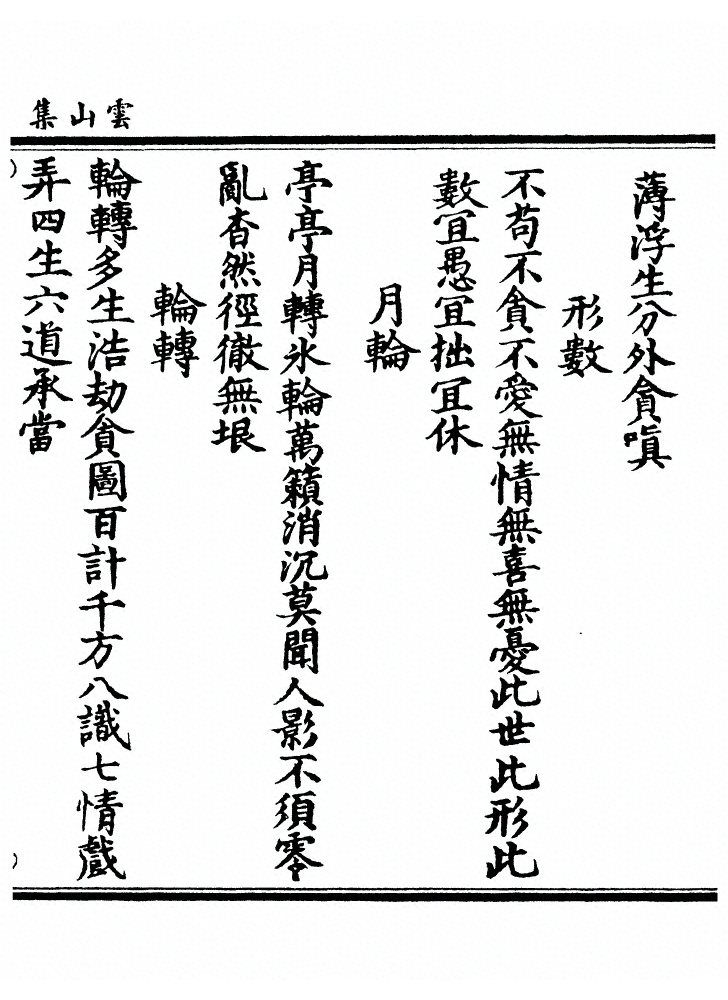 雲山集
薄浮生分外貪嗔
形數
不苟不貪不愛無情無喜無憂此世此形此
數宜愚宜拙宜休
月輪
亭亭月轉氷輪萬籟消沉莫聞人影不須零
亂杳然徑徹無垠
輪轉
輪轉多生浩劫貪圖百計千方八識七情戲
弄四生六道承當